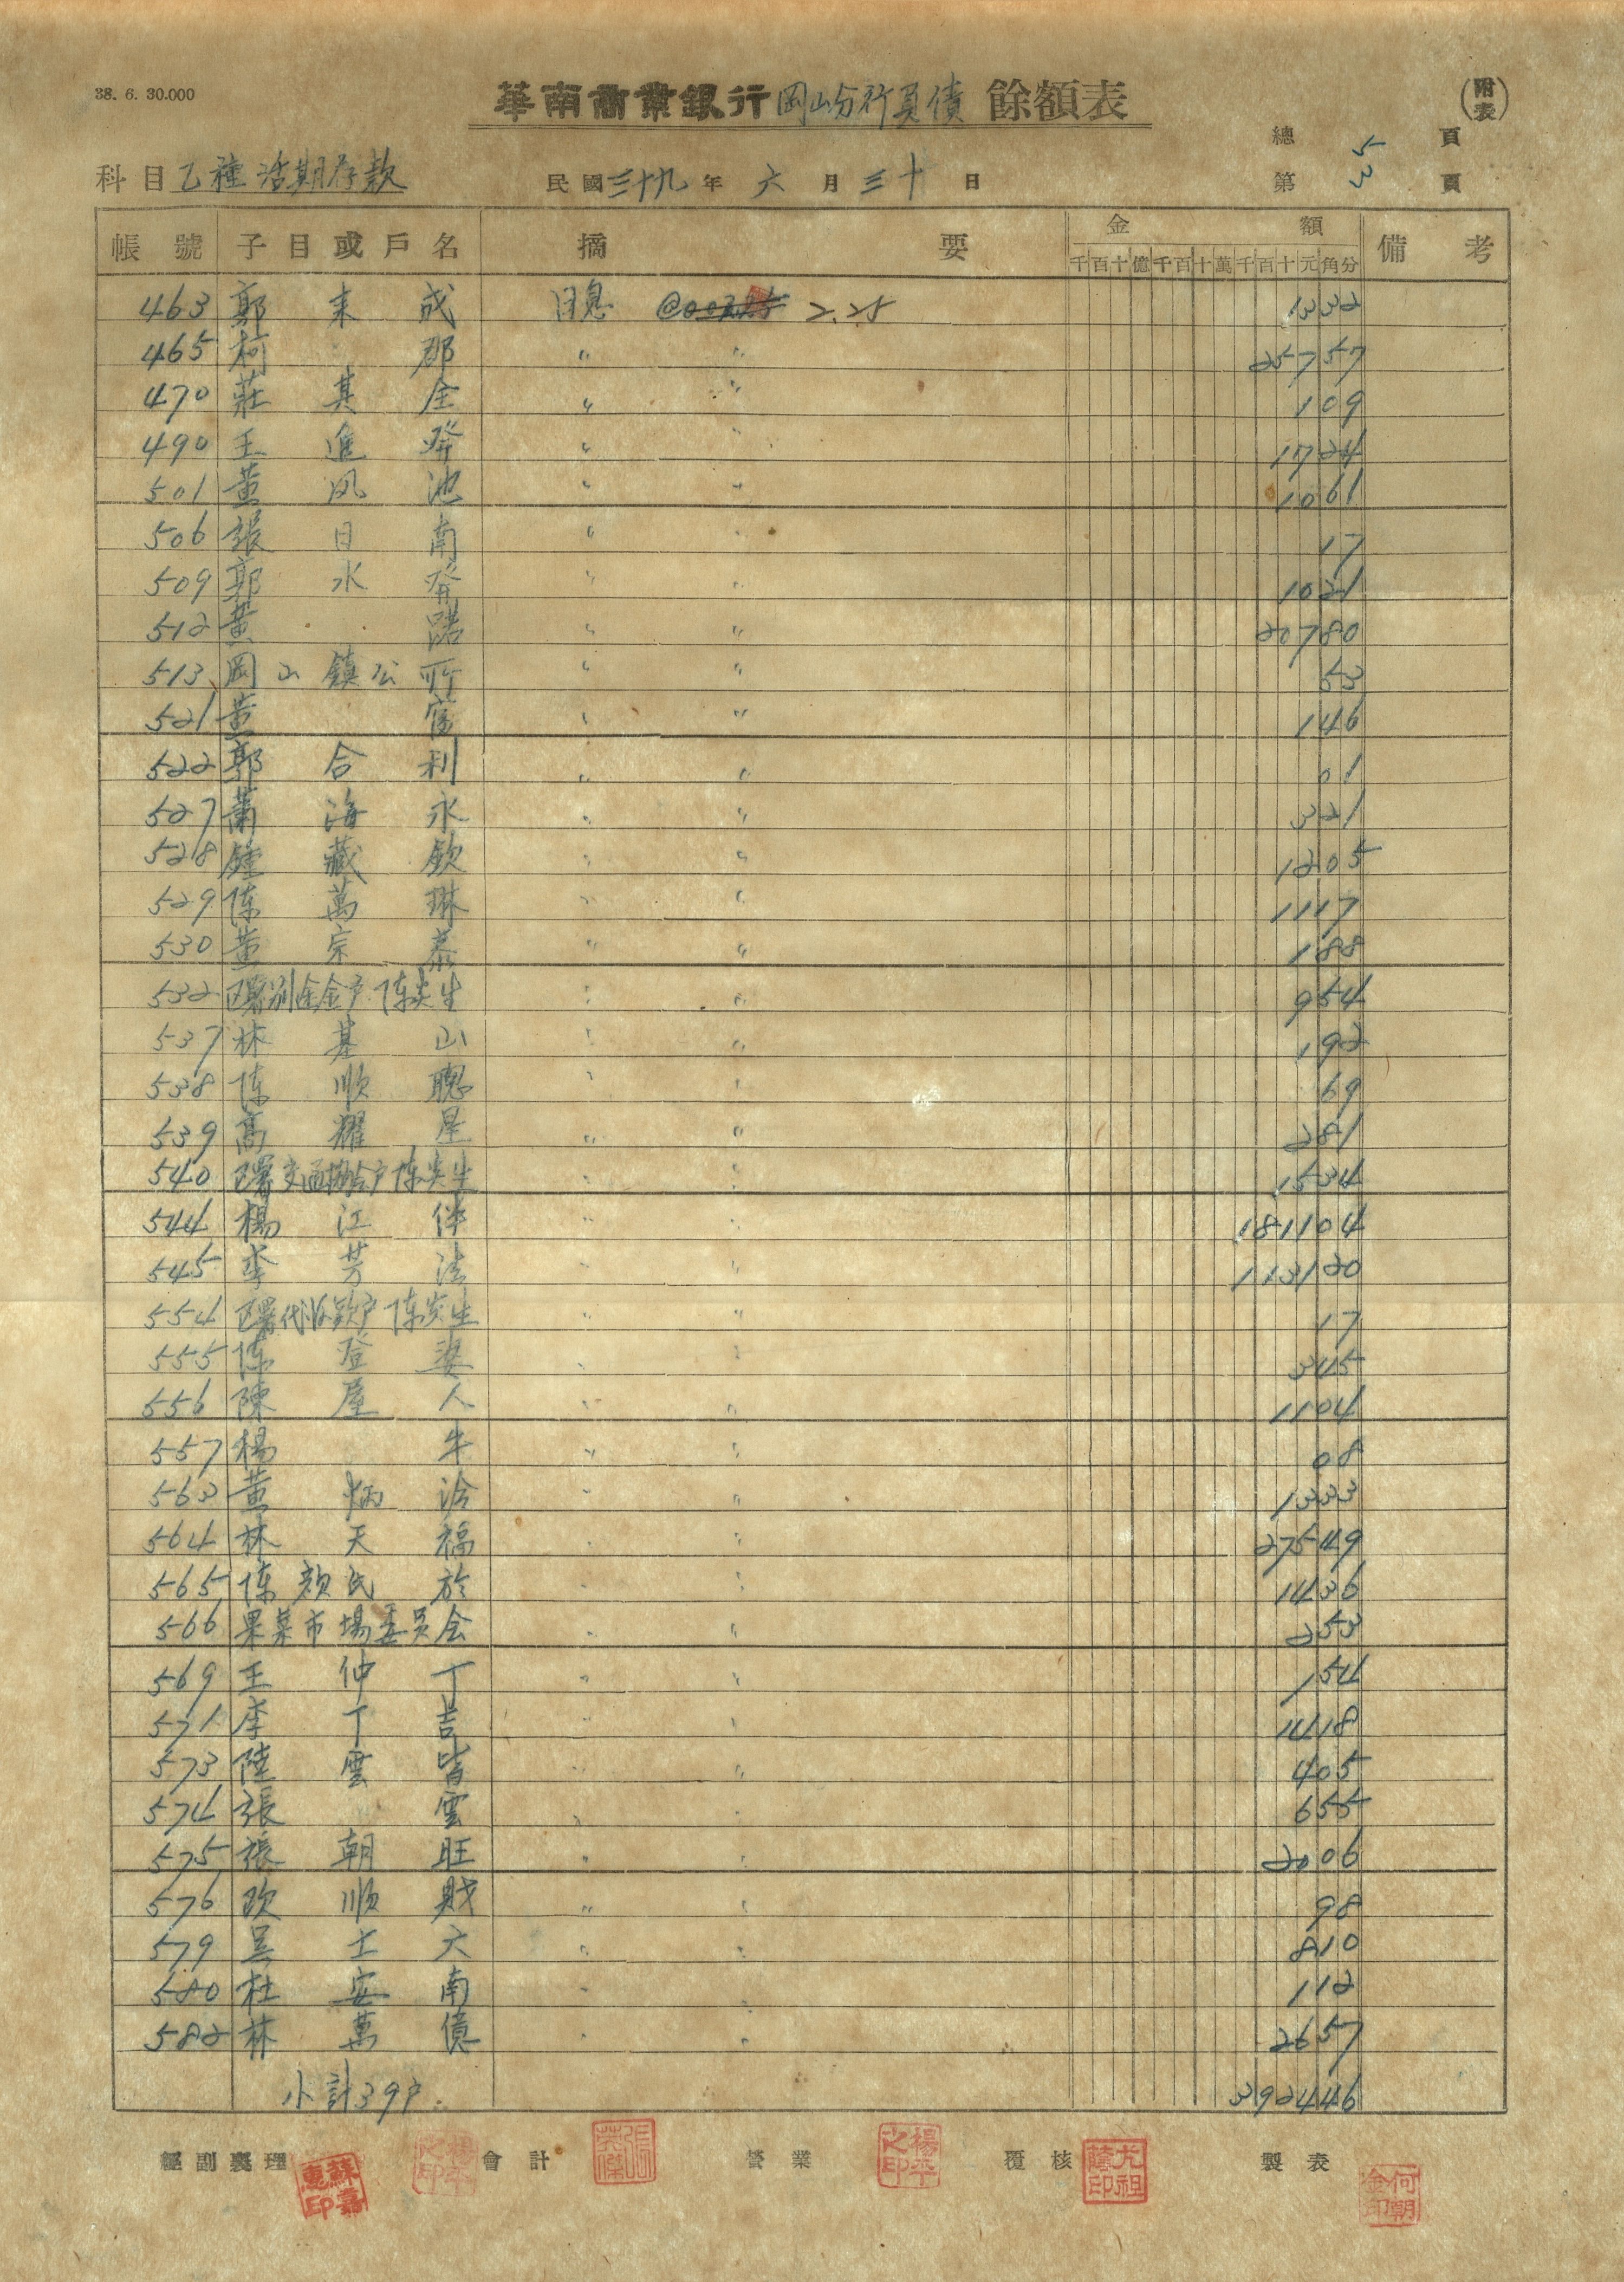 38. 6. 30.000
華南商業銀行岡山分行負債 餘額表
(附表)
總 5 頁
科目 乙種活期存款 民國三十九年六月三十日 第 3 頁
帳號 子目或戶名 摘要 金額 備考
千百十億千百十萬千百十元角分
463 郭來成 日息 2.25 1332
465 柯 郡 〃 〃 25757
470 莊其全 〃 〃 109
490 王進發 〃 〃 1724
501 黃凤池 〃 〃 1061
506 張日南 〃 17
509 郭水發 〃 〃 1021
512 黃 〃 〃 20780
513 岡山鎮公所 〃 〃 53
521 黃 〃 〃 146
522 郭合利 〃 〃 01
527 蕭海永 〃 〃 321
528 鍾藏欽 〃 〃 1205
529 陈萬琳 〃 〃 1117
530 黃宗恭 〃 〃 188
532 〃 〃 954
537 林基山 〃 〃 192
538 陈順聰 〃 〃 69
539 高耀星 〃 〃 281
540 〃 〃 1534
544 楊江伴 〃 〃 181104
545 李芳 〃 〃 113120
554 区署代收款户 〃 〃 17
555 陈登 〃 〃 345
556 陳屋人 〃 〃 1104
557 楊 牛 〃 〃 08
563 黃炳 〃 〃 1333
564 林天福 〃 〃 27549
565 陈顏氏於 〃 〃 1436
566 果菜市場委員会 〃 〃 253
569 王仲丁 〃 〃 154
571 李丁吉 〃 〃 1418
573 陸雲皆 〃 〃 405
574 張 雲 〃 〃 655
575 張朝旺 〃 〃 2006
576 欧順財 〃 〃 98
579 吴士六 〃 〃 810
580 杜安南 〃 〃 112
582 林萬億 〃 〃 2657
小計39户 392446
經副襄理 會計 營業 覆核 製表
蘇嘉惠印 楊平之印 張英傑 楊平之印 尤祖蔭印 何朝金印